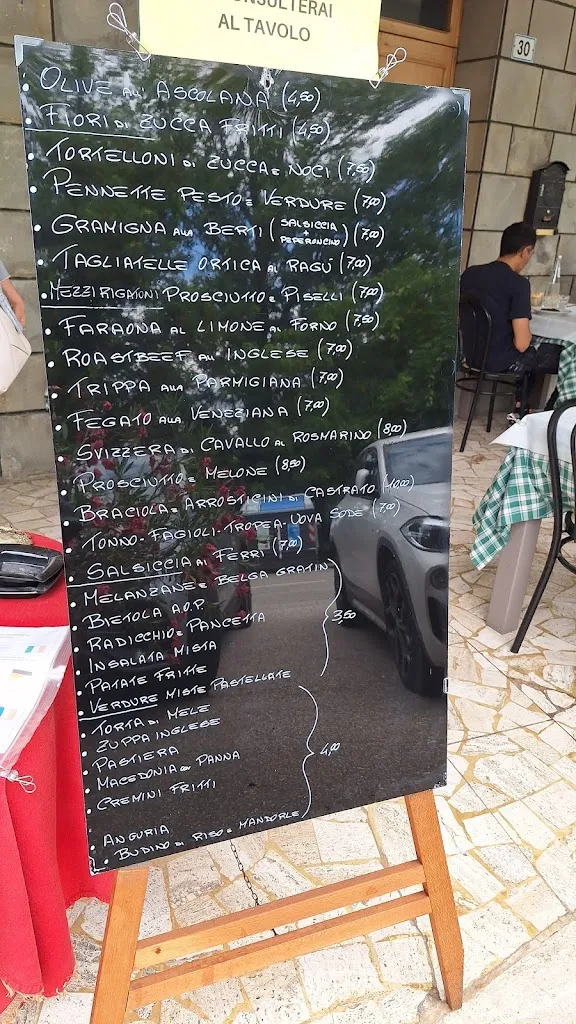 CONSULTERAI
AL TAVOLO
30
• OLIVE ALL'ASCOLANA (4,50)
• FIORI DI ZUCCA FRITTI (4,50)
• TORTELLONI DI ZUCCA E NOCI (7,50)
• PENNETTE PESTO E VERDURE (7,00)
• GRAMIGNA ALLA BERTI (SALSICCIA + PEPERONCINO) (7,00)
• TAGLIATELLE ORTICA AL RAGÙ (7,00)
• MEZZI RIGATONI PROSCIUTTO E PISELLI (7,00)
• FARAONA AL LIMONE AL FORNO (7,50)
• ROASTBEEF ALL'INGLESE (7,00)
• TRIPPA ALLA PARMIGIANA (7,00)
• FEGATO ALLA VENEZIANA (7,00)
• SVIZZERA DI CAVALLO AL ROSMARINO (8,00)
• PROSCIUTTO E MELONE (8,50)
• BRACIOLA E ARROSTICINI DI CASTRATO (10,00)
• TONNO-FAGIOLI-TROPEA-UOVA SODE (7,00)
• SALSICCIA AI FERRI (7,00)
• MELANZANE E BELGA GRATIN
• BIETOLA A.O.P.
• RADICCHIO E PANCETTA 3,50
• INSALATA MISTA
• PATATE FRITTE
• VERDURE MISTE PASTELLATE
• TORTA DI MELE
• ZUPPA INGLESE
• PASTIERA
• MACEDONIA CON PANNA 4,00
• CREMINI FRITTI
• ANGURIA
• BUDINO DI RISO E MANDORLE